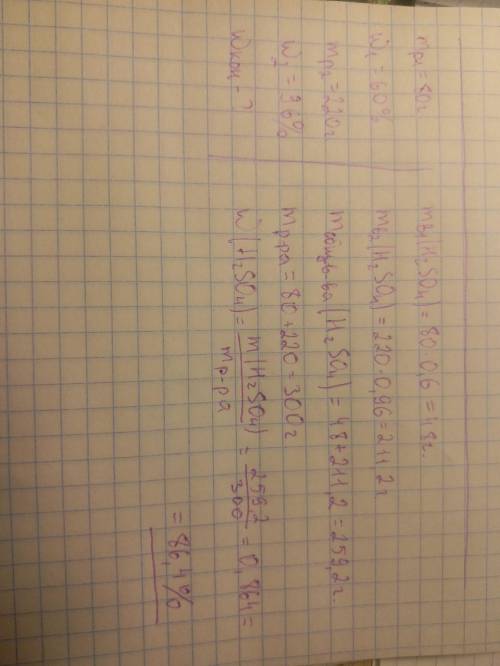 mр1 = 80г
ω1 = 60%
mр2 = 220г
ω2 = 96%
ωкон - ?
mв1(H2SO4) = 80·0,6 = 48г.
mв2(H2SO4) = 220·0,96 = 211,2г
m в-ва (H2SO4) = 48+211,2 = 259,2г.
mр-ра = 80+220 = 300г
ω(H2SO4) = m(H2SO4) / mр-ра = 259,2 / 300 = 0,864 =
= 86,4%